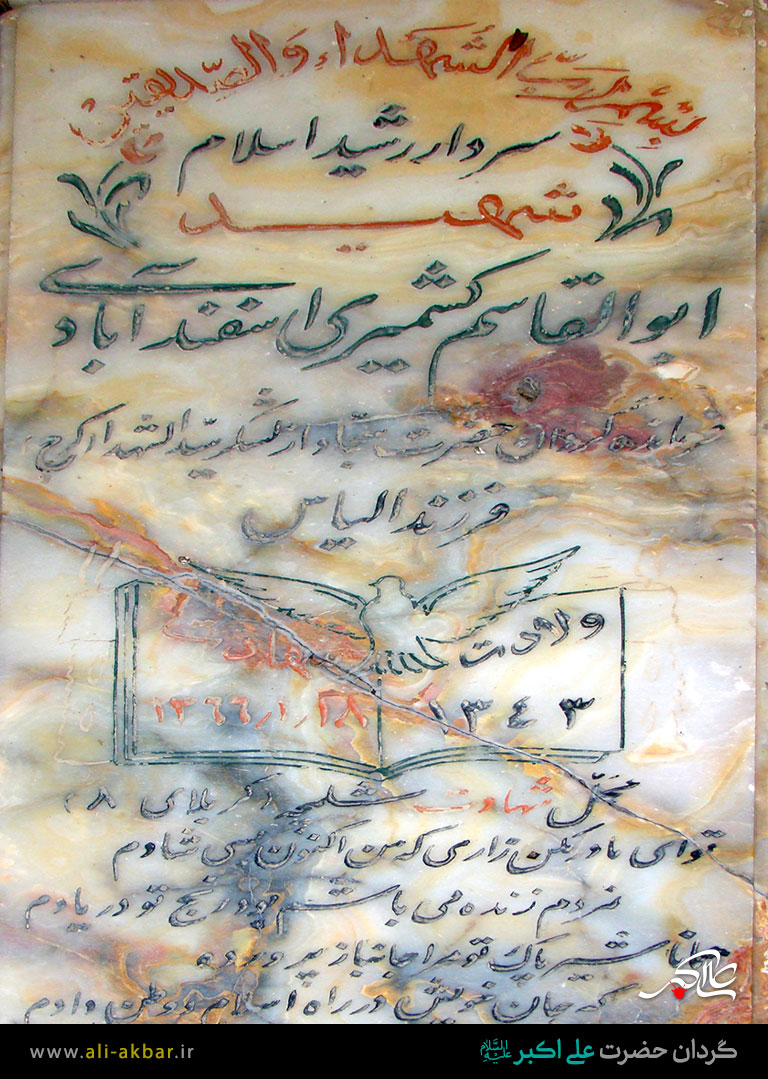 بسم رب الشهداء والصدیقین
سردار رشید اسلام
شهید
ابوالقاسم کشمیری اسفندآبادی
فرمانده گردان حضرت سجاد از لشکر سیدالشهدا کرج
فرزند الیاس
ولادت
۱۳۴۳
شهادت
۱۳۶۶/۱/۲۸
محل شهادت شلمچه (کربلای ۸)
تو ای مادر مکن زاری که من اکنون بسی شادم
نمردم زنده می باشم بود رنج تو در یادم
شیر پاک تو مرا جانباز پرورده
که جان خویش در راه اسلام و وطن دادم
علی اکبر
گردان حضرت علی اکبر علیه السلام
www.ali-akbar.ir